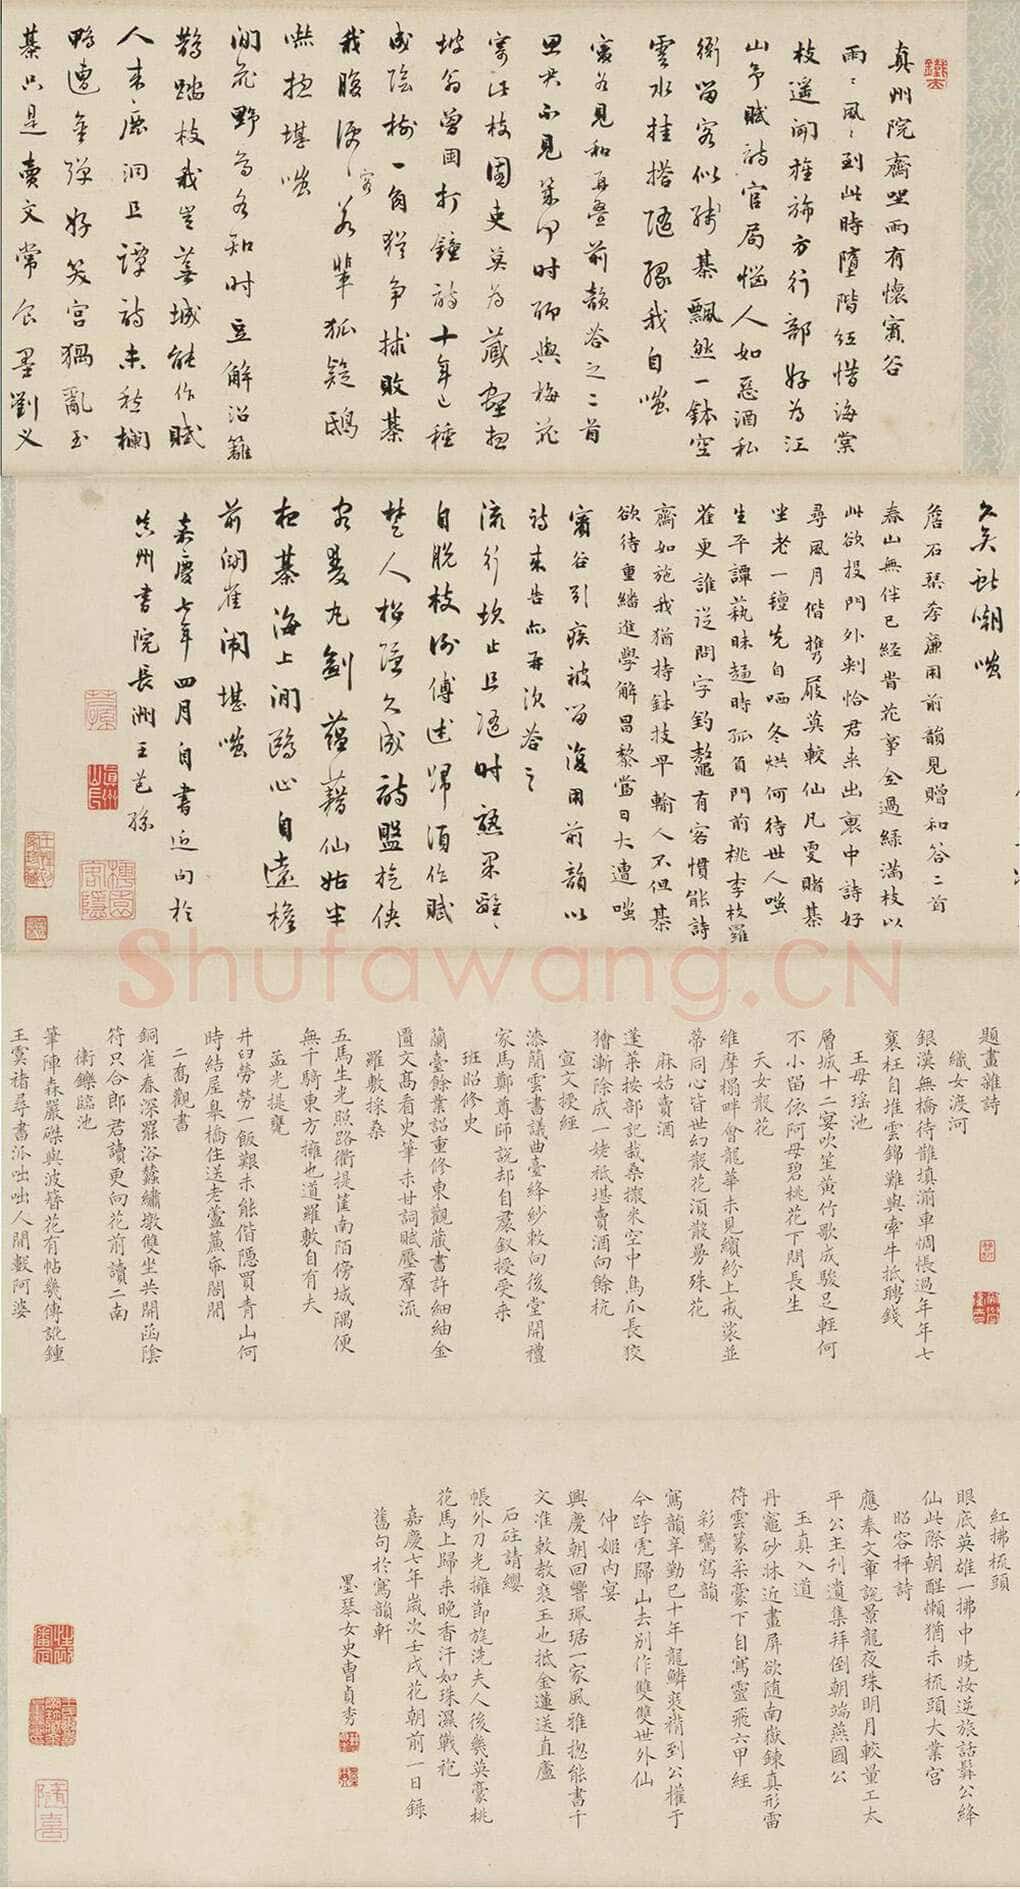 真州院齋坐雨有懷賓谷
雨雨風風到此時墮階紅惜海棠
枝遥開旌旆方行部好為江
山爭賦詩官局惱人如惡酒私
衙留客似殘棊飄然一鉢空
雲水挂搭隨緣我自嗤
賓谷見和再疊前韻答之二首
思君不見某何時聊與梅花
寄汪枝園吏莫為藏壑
坡翁曾困打鐘詩十年已種
成陰樹一角猶爭掠敗棊
我腹便便客若輩狐疑鴟
嚇極堪嗤
閒花野鳥各知時豆解沿籬
鵲踏枝我豈蕪城能作賦
人來鹿洞且譚詩未愁欄
鴨遭金彈好笑宮猧亂玉
棊只是賣文常食墨劉乂
久矣訕嘲嗤
詹石琹孝廉用前韻見贈和答二首
春山無伴已經背花事全過綠滿枝以
此欲投門外刺恰君來出裏中詩好
尋風月偕攜屐莫較仙凡更賭棊
坐老一氊先自哂冬烘何待世人嗤
生平譚蓺昧趨時孤負門前桃李枝羅
雀更誰從問字釣鼇有客慣能詩
齋如施我猶持鉢技早輸人不但棊
欲待重繙進學解昌黎當日大遭嗤
賓谷引疾被留復用前韻以
詩來告亦再次答之
流行坎止且隨時落果離離
自脫枝倒傅迷歸須作賦
楚人招隱久成詩盤旋俠
客夔丸劍蘊藉仙姑半
抱棊海上閒鷗心自遠檐
前閒雀鬧堪嗤
嘉慶七年四月自書近句於
真州書院長洲王芑孫
題畫雜詩
織女渡河
銀漢無橋待鵲填湔車惆悵過年年七
襄枉自堆雲錦難與牽牛抵聘錢
王母瑤池
層城十二宴吹笙黃竹歌成駿足輕何
不小留依阿母碧桃花下問長生
天女散花
維摩榻畔會龍華未見繽紛上戒裟並
蒂同心皆世幻散花須散曼殊花
麻姑賣酒
蓬萊按部記栽桑擲米空中鳥爪長狡
獪漸除成一姥祗堪賣酒向餘杭
宣文授經
漆簡雲書議曲臺絳紗敕向後堂開禮
家馬鄭尊師說却自裙釵授受來
班昭修史
蘭臺餘業詔重修東觀藏書許細紬金
匱文高看史筆未甘詞賦壓羣流
羅敷採桑
五馬生光照路衢提筐南陌傍城隅便
無千騎東方擁也道羅敷自有夫
孟光提甕
井臼勞勞一飯艱未能偕隱買青山何
時結屋皋橋住送老蘆簾帋閤間
二喬觀書
銅雀春深罷浴蠶繡墩雙坐共開函陰
符只合郎君讀更向花前讀二南
衛鑠臨池
筆陣森嚴磔與波簪花有帖幾傳訛鍾
王虞褚尋書派咄咄人間數阿婆
紅拂梳頭
眼底英雄一拂中曉妝逆旅話髯公絳
仙此際朝酲懶猶未梳頭大業宮
昭容枰詩
應奉文章說景龍夜珠明月較量工太
平公主刊遺集拜倒朝端燕國公
玉真入道
丹竈砂牀近畫屏欲隨南嶽鍊真形雷
符雲篆柔豪下自寫靈飛六甲經
彩鸞寫韻
寫韻辛勤已十年龍鱗裘褙到公權于
今跨虎歸山去別作雙雙世外仙
仲姬內宴
興慶朝回響珮琚一家風雅揔能書千
文准敕教裝玉也抵金蓮送直廬
石砫請纓
帳外刀光擁節旄洗夫人後幾英豪桃
花馬上歸來晚香汗如珠濕戰袍
嘉慶七年歲次壬戌花朝前一日錄
舊句於寫韻軒
墨琴女史曹貞秀
Shufawang.CN